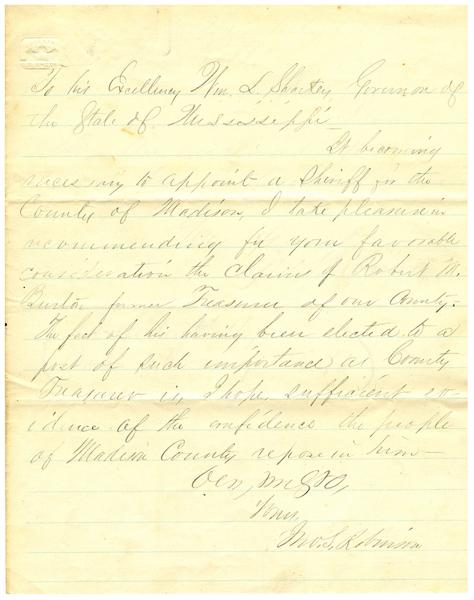 To his Excellency Wm. L. Sharkey Governor of
the State of Mississippi
It becoming
necessary to appoint a Sheriff for the
County of Madison, I take pleasure in
recommending for your favorable
consideration the claims of Robert M.
former Treasurer of our County.
The fact of his having been elected to a
post of such importance as County
Treasurer is, I hope, sufficient ev-
idence of the confidence the people
of Madison County repose in him—
Yours,
Jno. S. Robinson